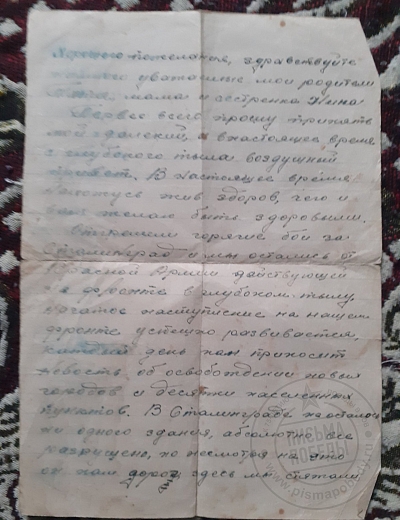 Хорошего пожелания, здравствуйте
уважаемые мои родители
мама и сестренка Нина
Первее всего прошу принять
мой далекий, а в настоящее время
с глубокого тыла воздушный
привет. В настоящее время
нахожусь жив, здоров, чего и
вам желаю быть здоровыми.
Отгремели горячие бои за
Сталинград и мы остались от
Красной Армии действующей
в фронте в глубоком тылу,
начатое наступление на нашем
фронте успешно развивается,
каждый день нам приносит
новость об освобождении новых
городов и десятки населенных
пунктов. В Сталинграде не осталось
ни одного здания, абсолютно все
разрушено, но несмотря на это
он нам дорог, здесь мы
ПИСЬМА ПОБЕДЫ
www.pismapobedy.ru